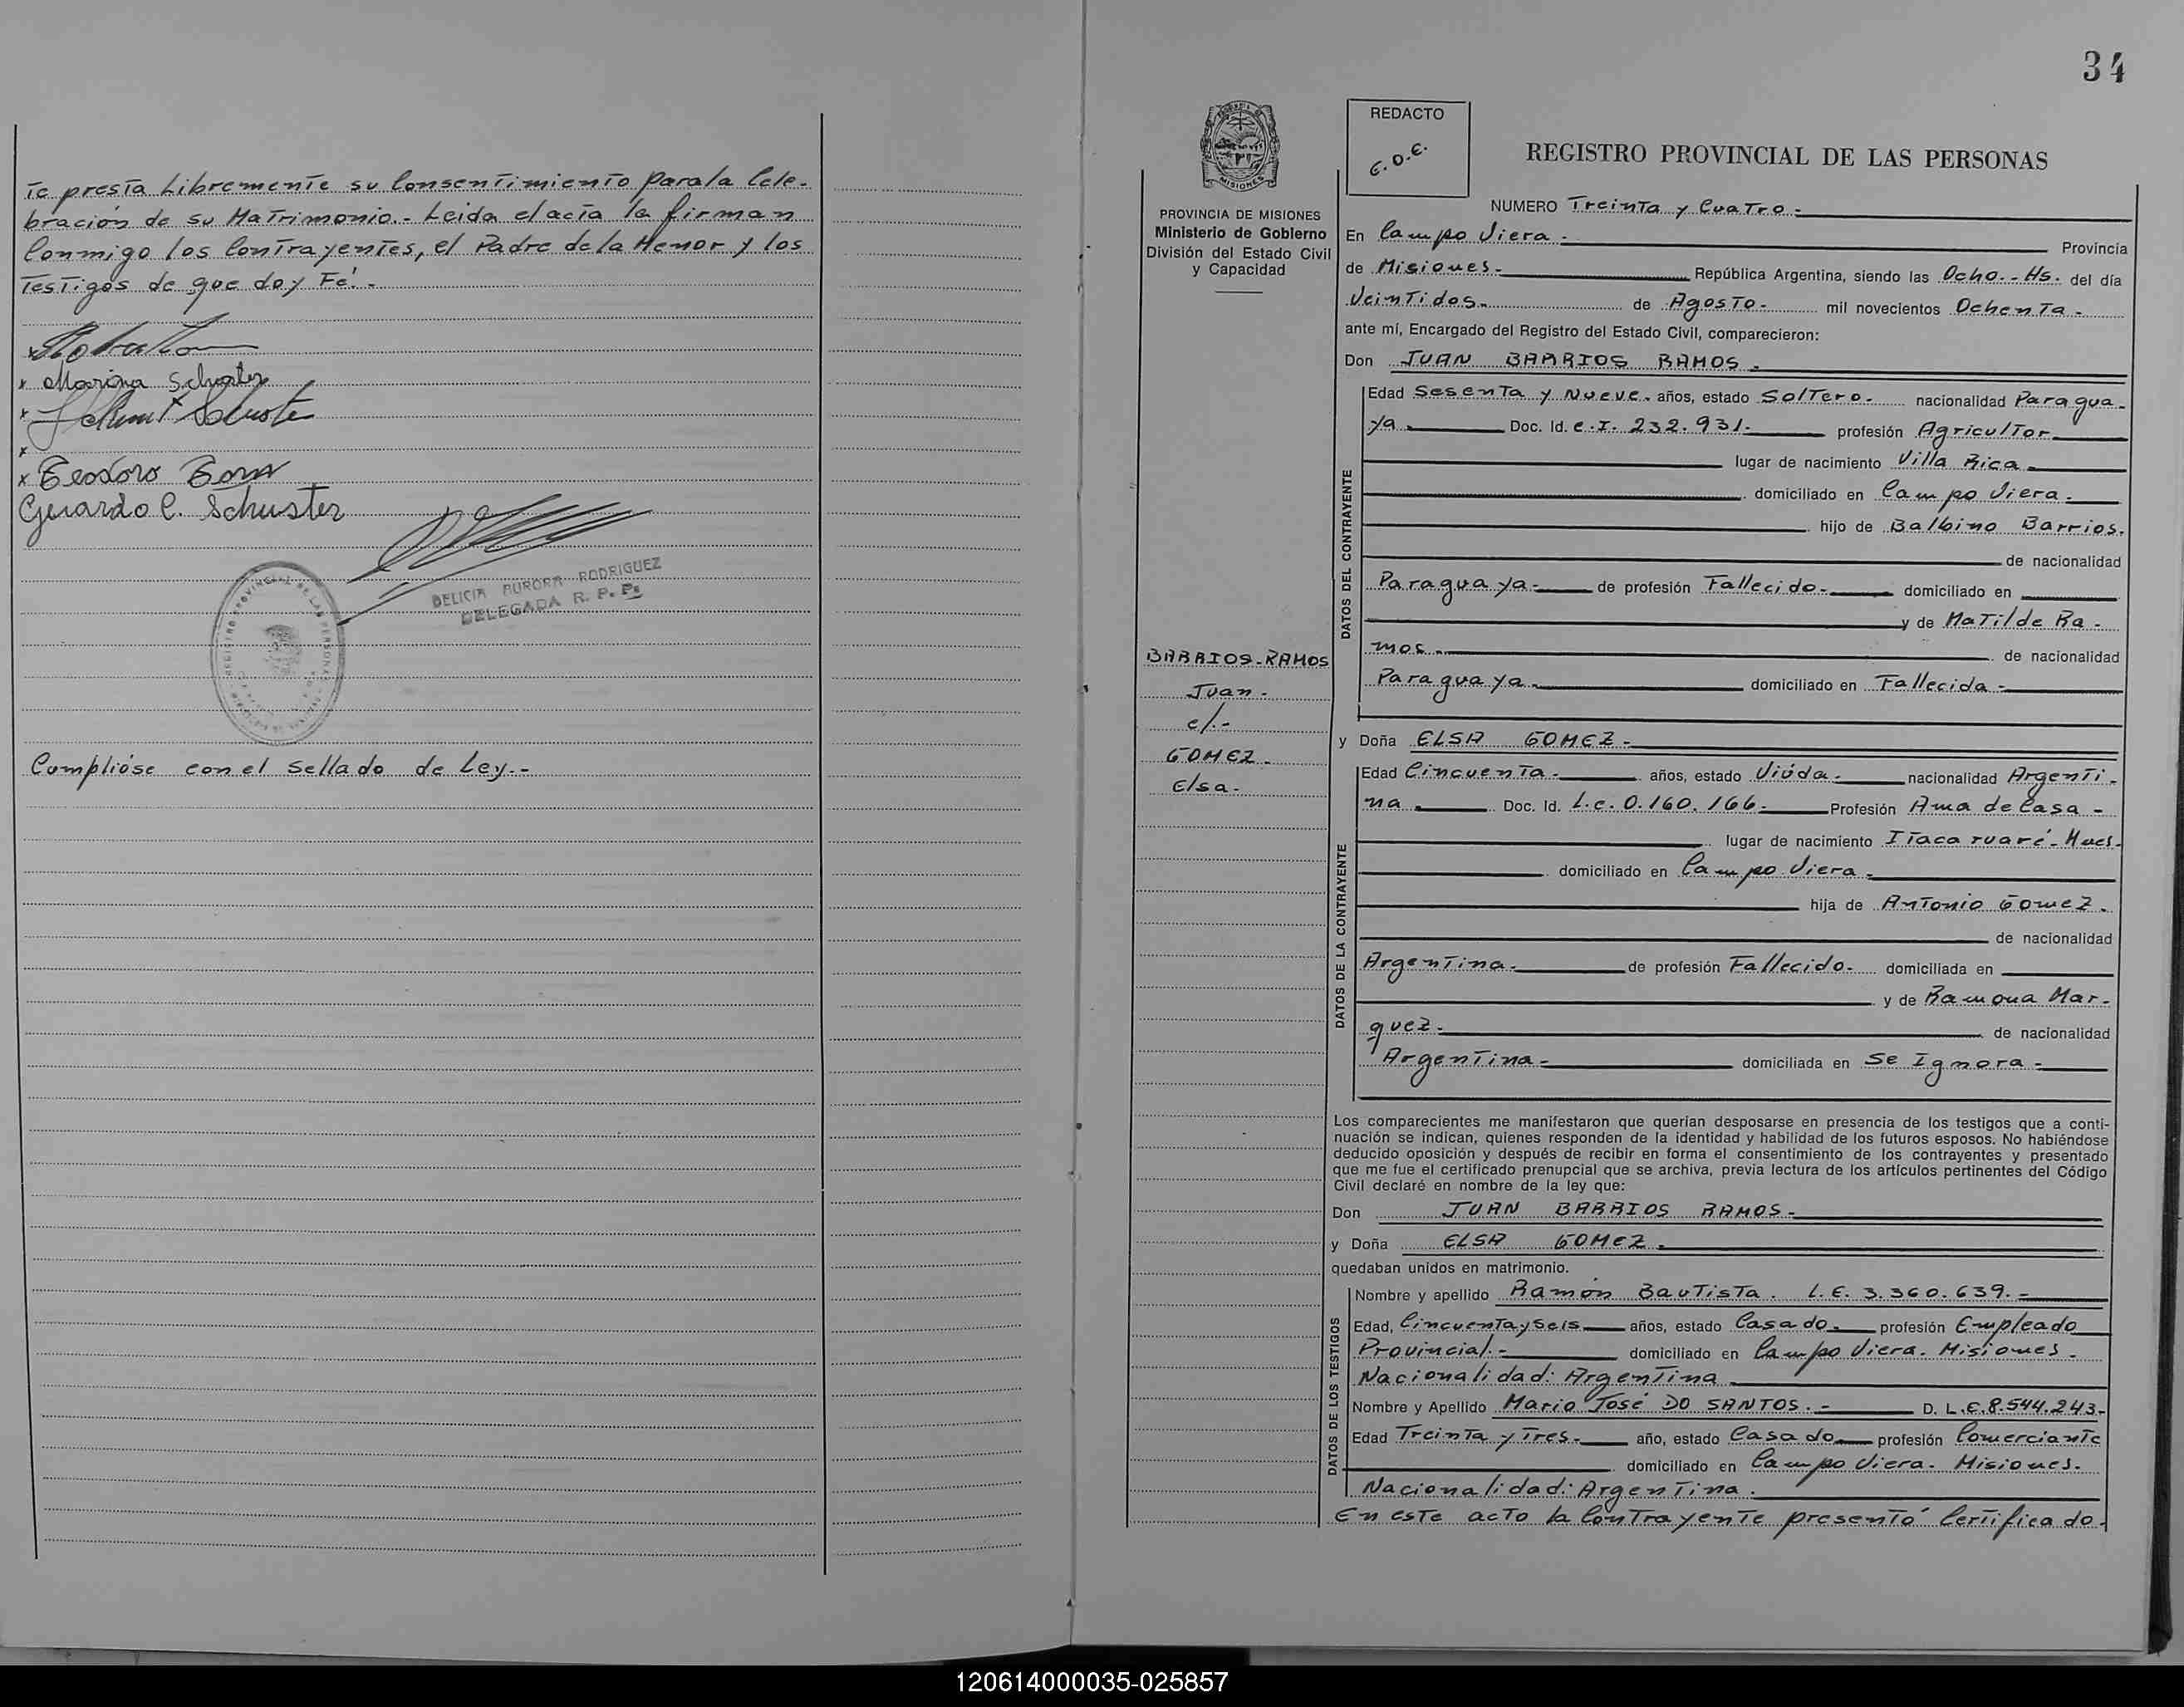 te presta Libremente su Consentimiento para la Cele-
bración de su Matrimonio.- Leida el acta la firman
Conmigo los Contrayentes, el Padre de la Menor y los
Testigos de que doy Fé.-
x
x Marina Schuster
x Schuster
x
x Teodoro
Gerardo C. Schuster
DELICIA AURORA RODRIGUEZ
DELEGADA R. P. P.
REGISTRO PROVINCIAL DE LAS PERSONAS
Cumplióse con el sellado de Ley.-
34
MISIONES
PROVINCIA DE MISIONES
Ministerio de Gobierno
División del Estado Civil
y Capacidad
BARRIOS-RAMOS
Juan.-
c/.-
GOMEZ.
Elsa.-
REDACTO
E.O.E.
REGISTRO PROVINCIAL DE LAS PERSONAS
NUMERO Treinta y Cuatro.-
En Campo Viera.- Provincia
de Misiones.- República Argentina, siendo las Ocho.-Hs. del día
Veintidos.- de Agosto.- mil novecientos Ochenta.-
ante mí, Encargado del Registro del Estado Civil, comparecieron:
Don JUAN BARRIOS RAMOS.-
DATOS DEL CONTRAYENTE
Edad Sesenta y Nueve.- años, estado Soltero.- nacionalidad Paragua-
ya.- Doc. Id. C.I. 232.931.- profesión Agricultor
lugar de nacimiento Villa Rica.-
domiciliado en Campo Viera.-
hijo de Balbino Barrios.
de nacionalidad
Paraguaya.- de profesión Fallecido.- domiciliado en
y de Matilde Ra-
mos.- de nacionalidad
Paraguaya.- domiciliado en Fallecida.-
y Doña ELSA GOMEZ.-
DATOS DE LA CONTRAYENTE
Edad Cincuenta.- años, estado Viúda.- nacionalidad Argenti-
na.- Doc. Id. L.C. 0.160.166.- Profesión Ama de Casa-
lugar de nacimiento Itacaruaré-Mnes.
domiciliado en Campo Viera.-
hija de Antonio Gomez.
de nacionalidad
Argentina.- de profesión Fallecido.- domiciliada en
y de Ramona Mar-
quez.- de nacionalidad
Argentina.- domiciliada en Se Ignora.-
Los comparecientes me manifestaron que querían desposarse en presencia de los testigos que a conti-
nuación se indican, quienes responden de la identidad y habilidad de los futuros esposos. No habiéndose
deducido oposición y después de recibir en forma el consentimiento de los contrayentes y presentado
que me fue el certificado prenupcial que se archiva, previa lectura de los artículos pertinentes del Código
Civil declaré en nombre de la ley que:
Don JUAN BARRIOS RAMOS.-
y Doña ELSA GOMEZ.-
quedaban unidos en matrimonio.
DATOS DE LOS TESTIGOS
Nombre y apellido Ramón Bautista. L.E. 3.360.639.-
Edad, Cincuenta y Seis años, estado Casado.- profesión Empleado
Provincial.- domiciliado en Campo Viera. Misiones.-
Nacionalidad: Argentina
Nombre y Apellido Mario José DO SANTOS.- D. L.E. 8.544.243-
Edad Treinta y Tres.- año, estado Casado profesión Comerciante
domiciliado en Campo Viera. Misiones.
Nacionalidad: Argentina.
En este acto la Contrayente presentó Certificado.
120614000035-025857